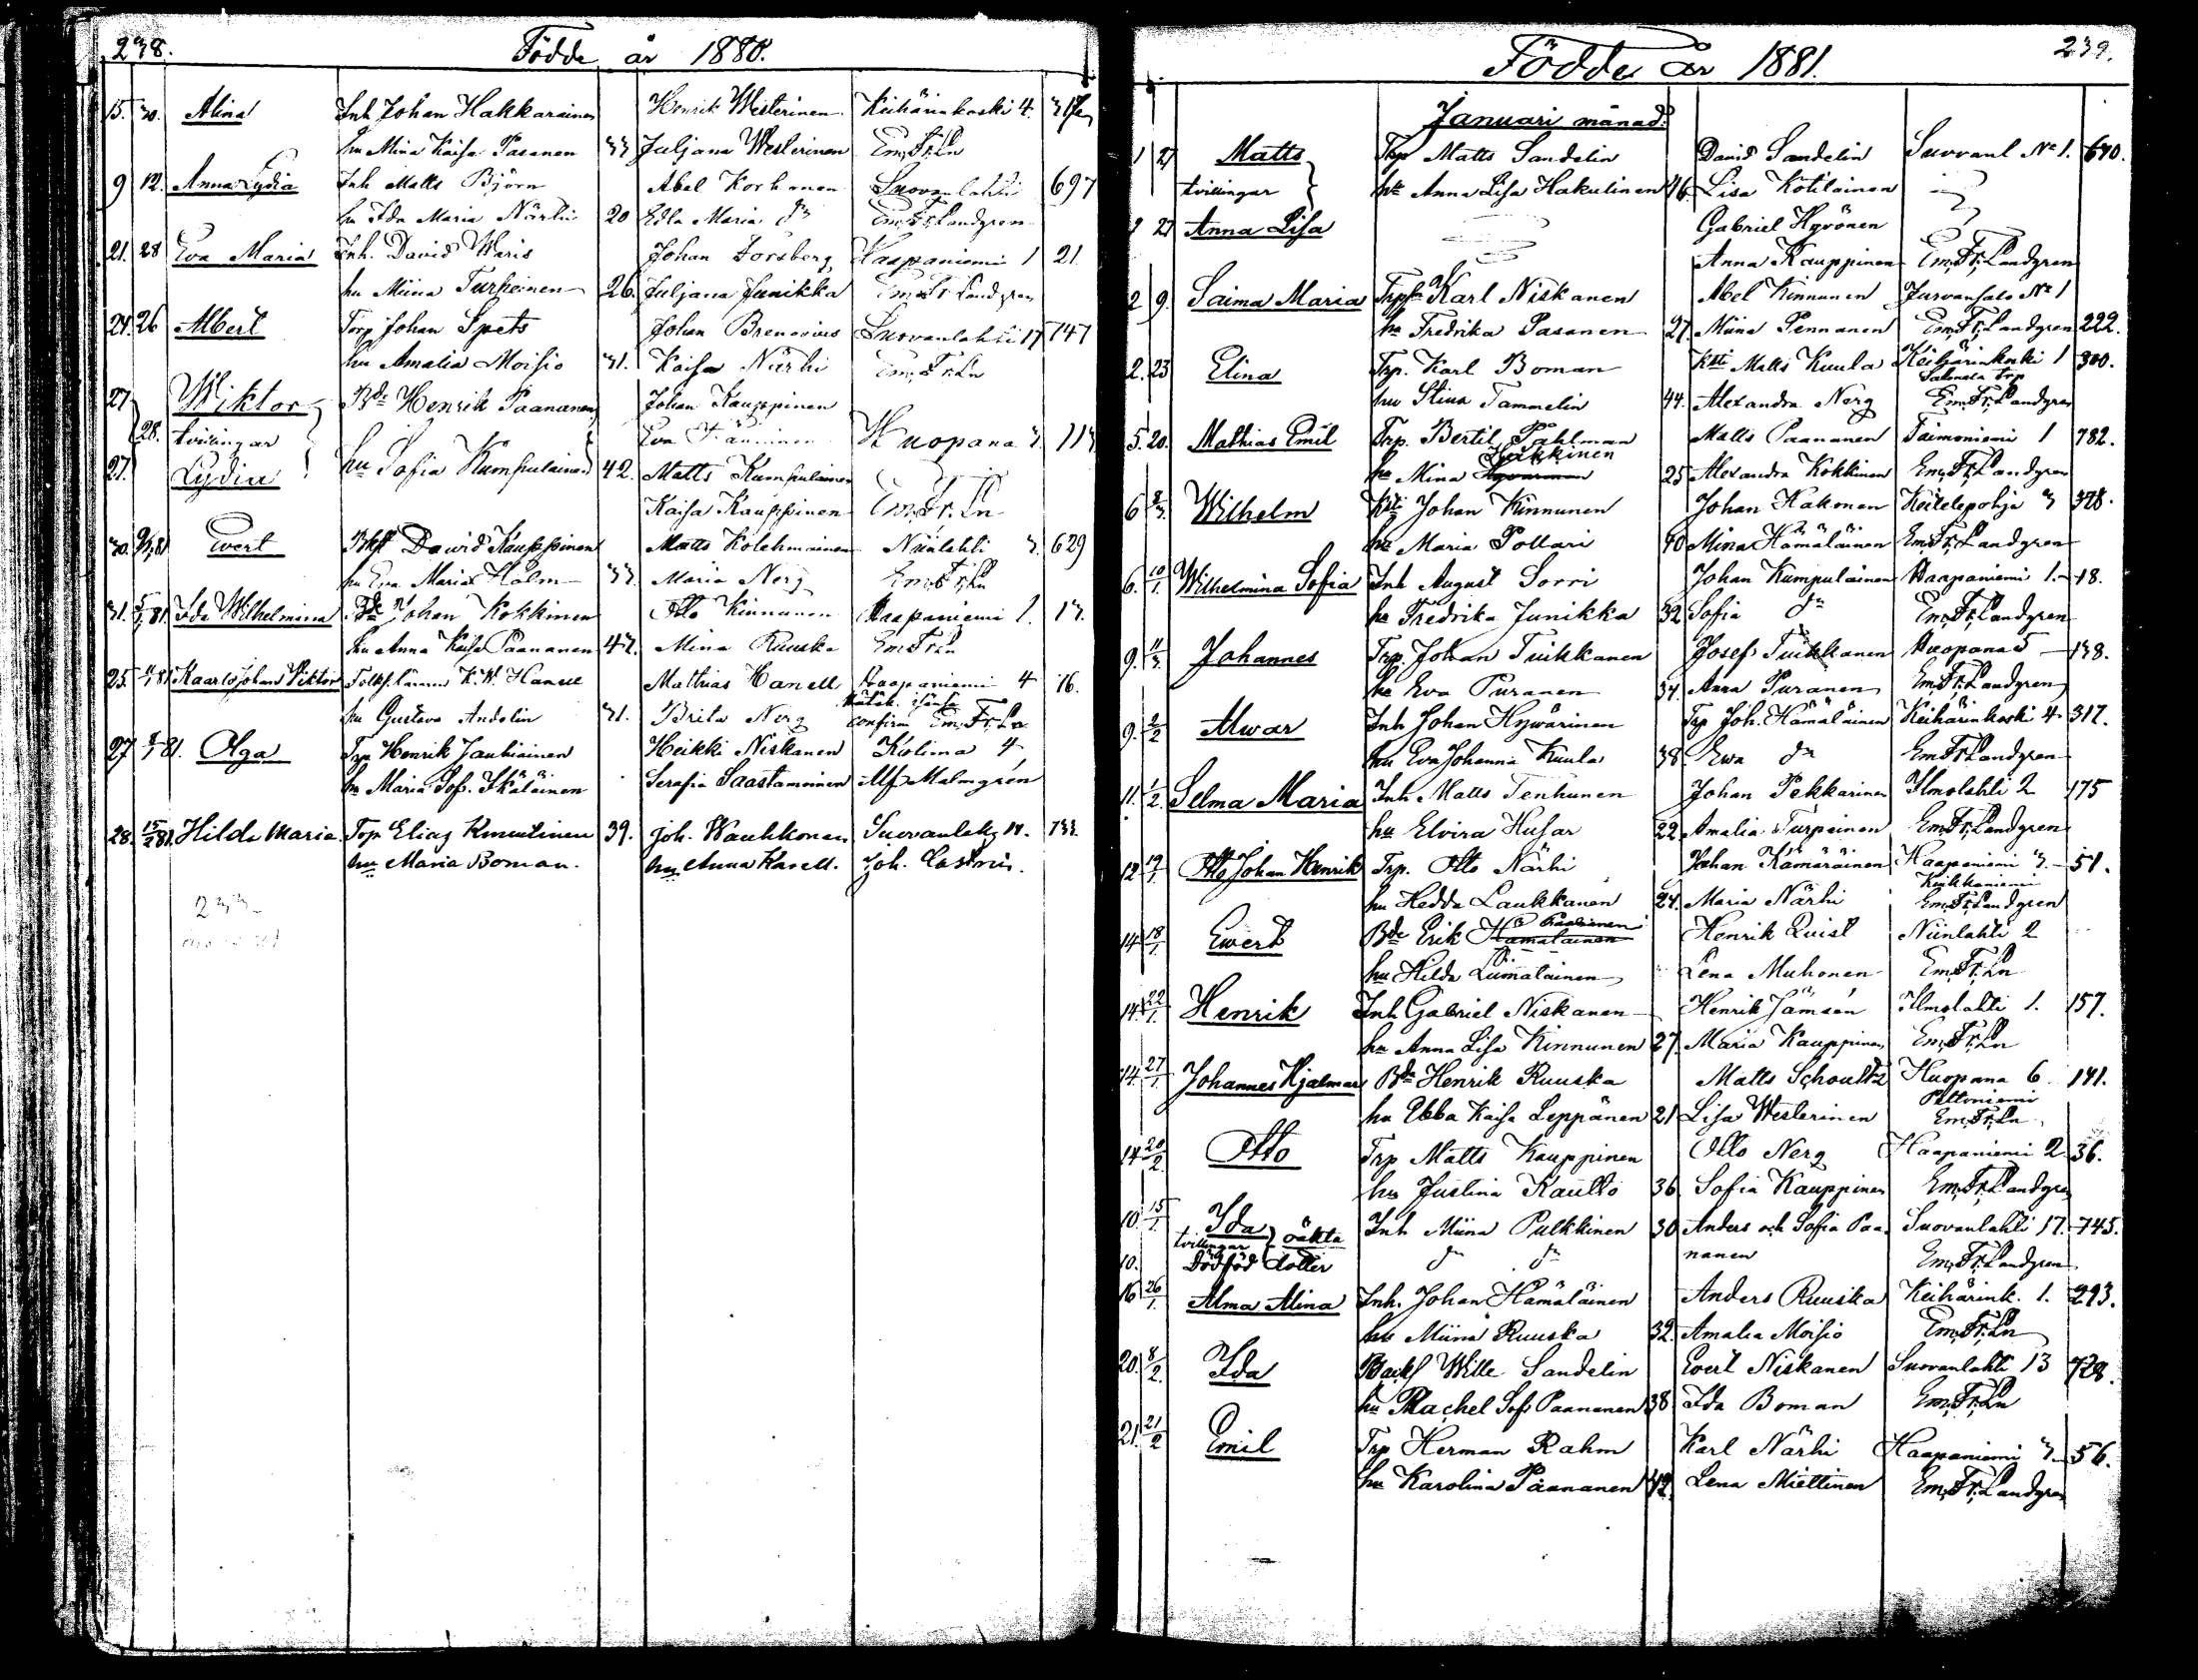 238.
Födde år 1880.
15. 30. Alina Inh Johan Hakkarainen Henrik Westerinen Keihärinkoski 4. 317
hu Mina Kaisa Pasanen 33 Juljana Westerinen Em. Fr. Ln
9 12. Anna Lydia Inh Matts Björn Abel Korhonen Suovanlahti 697
hu Ida Maria Närhi 20 Edla Maria do Em. Fr. Landgren
21. 28 Eva Maria Inh. David Waris Johan Forsberg Haapaniemi 1 21.
hu Miina Turpeinen 26. Juljana Junikka Em. Fr. Landgren
24. 26 Albert Torp Johan Spets Johan Brenorius Suovanlahti 17 747
hu Amalia Moisio 31. Kaisa Närhi Em. Fr. Ln
27 Wiktor Bde Henrik Paananen Johan Kauppinen
28. tvillingar Eva Huopana 3. 113
27. Lydia hu Sofia Kumpulainen 42. Matts Kumpulainen
Kaisa Kauppinen Em. Fr. Ln
30. Evert David Kauppinen Matts Kolehmainen Niinlahti 3. 629
hu Eva Maria Holm 33. Maria Nerg Em. Fr. Ln
31. 5/1 81. Ida Wilhelmina Bde Johan Kokkinen Otto Kinnunen Haapaniemi 1. 13.
hu Anna Kaisa Paananen 43. Mina Ruuska Em Fr Ln
25. 81 Kaarlo Johan Viktor Folksk.länen K. W. Hanell Mathias Hanell Haapaniemi 4 76.
hu Gustava Andelin 31. Brita Nerg confirm Em. Fr. Ln
27 81. Olga Trp Henrik Jauhiainen Heikki Niskanen Kolima 4
hu Maria Sof. Ikäläinen Serafia Saastamoinen Alf Malmgrén
28. 15/2 81. Hilda Maria Trp Elias Kmuutinen 39. Joh. Wauhkonen Suovanlaht 14. 733.
hu Maria Boman. hu Anna Karell. Joh. Castrén.
233
239.
Födde år 1881.
Januari månad.
1 27 Matts Trp Matts Sandelin David Sandelin Suovanl No 1. 670.
tvillingar hu Anna Lisa Hakulinen 46. Lisa Kotilainen
1 27 Anna Lisa Gabriel Hyvönen
Anna Kauppinen Em. Fr. Landgren
2 9. Saima Maria Karl Niskanen Abel Kinnunen Jurvansalo No 1
hu Fredrika Pasanen 27. Miina Pennanen Em. Fr. Landgren 222.
2. 23 Elina Trp. Karl Boman Matts Kuula Keihärinkoski 1 300.
hu Stina Tammelin 44. Alexandra Nerg Em. Fr. Landgren
5. 20. Mathias Emil Trp. Bertil Pahlman Matts Paananen Taimoniemi 1 782.
Häkkinen
hu Mina 25 Alexandra Kokkinen Em. Fr. Landgren
6 Wilhelm Johan Kinnunen Johan Hakonen Keitelepohja 3 378.
hu Maria Pollari 40 Mina Hämäläinen Em. Fr. Landgren
6. 10/1. Wilhelmina Sofia Inh August Sorri Johan Kumpulainen Haapaniemi 1. 18.
hu Fredrika Junikka 32 Sofia do Em. Fr. Landgren
9. Johannes Trp. Johan Tuikkanen Josef Tuikkanen Huopana 5 138.
hu Eva Puranen 34. Anna Puranen Em. Fr. Landgren
9. 2/2 Alwar Inh Johan Hywärinen Trp Joh. Hämäläinen Keihärinkoski 4. 317.
hu Eva Johanna Kuula 38. Ewa do Em Fr Landgren
11. 1/2. Selma Maria Inh Matts Tenhunen Johan Pekkarinen Ilmolahti 2 175
hu Elvira Husar 22 Amalia Turpeinen Em. Fr. Landgren
12 19/1. Otto Johan Henrik Trp. Otto Närhi Johan Kämäräinen Haapaniemi 3. 51.
hu Hedda Laukkanen 24. Maria Närhi Em. Fr. Landgren
14 18/1. Ewert Bde Erik Hämäläinen Henrik Quist Niinlahti 2
hu Hilda Lumatainen Lena Muhonen Em. Fr. Ln
14. 22/1. Henrik Inh Gabriel Niskanen Henrik Jämsén Ilmolahti 1. 157.
hu Anna Lisa Kinnunen 27. Maria Kauppinen Em. Fr. Ln
14. 27/1. Johannes Hjalmar Bde Henrik Ruuska Matts Schoultz Huopana 6. 141.
Peltoniemi
hu Ebba Kaisa Leppänen 21 Lisa Westerinen Em. Fr. Ln
14 20/2. Otto Trp Matts Kauppinen Otto Nerg Haapaniemi 2. 36.
hu Justina Kautto 36. Sofia Kauppinen Em. Fr. Landgren
10 15/1. Ida Inh Miina Pulkkinen 30 Anders och Sofia Paa- Suovanlahti 17. 745.
tvillingar oäkta
10. Dödföd dotter do do nanen Em. Fr. Landgren
16 26/1. Alma Alina Inh. Johan Hämäläinen Anders Ruuska Keihärink. 1. 293.
hu Miina Ruuska 32. Amalia Moisio Em. Fr. Ln
20. 8/2. Ida Wille Sandelin Evert Niskanen Suovanlahti 13 728.
hu Rachel Sof. Paananen 38 Ida Boman Em. Fr. Ln
21. 21/2 Emil Trp Herman Rahm Karl Närhi Haapaniemi 3. 56.
hu Karolina Paananen 42. Lena Miettinen Em. Fr. Landgren